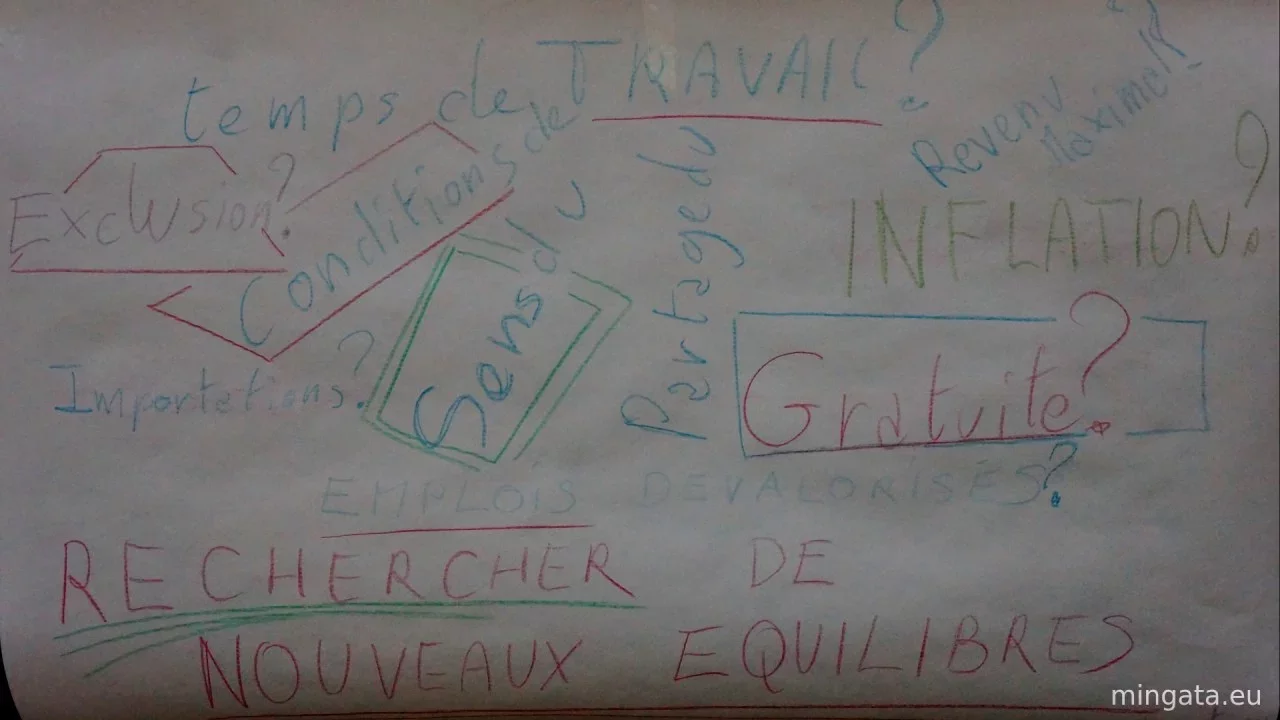 temps de TRAVAIL?
Revenu
Maximal?
Exclusion?
Conditions de
Sens du
Partage du
INFLATION?
Importations?
Gratuite?
EMPLOIS DEVALORISES?
RECHERCHER DE
NOUVEAUX EQUILIBRES
mingata.eu